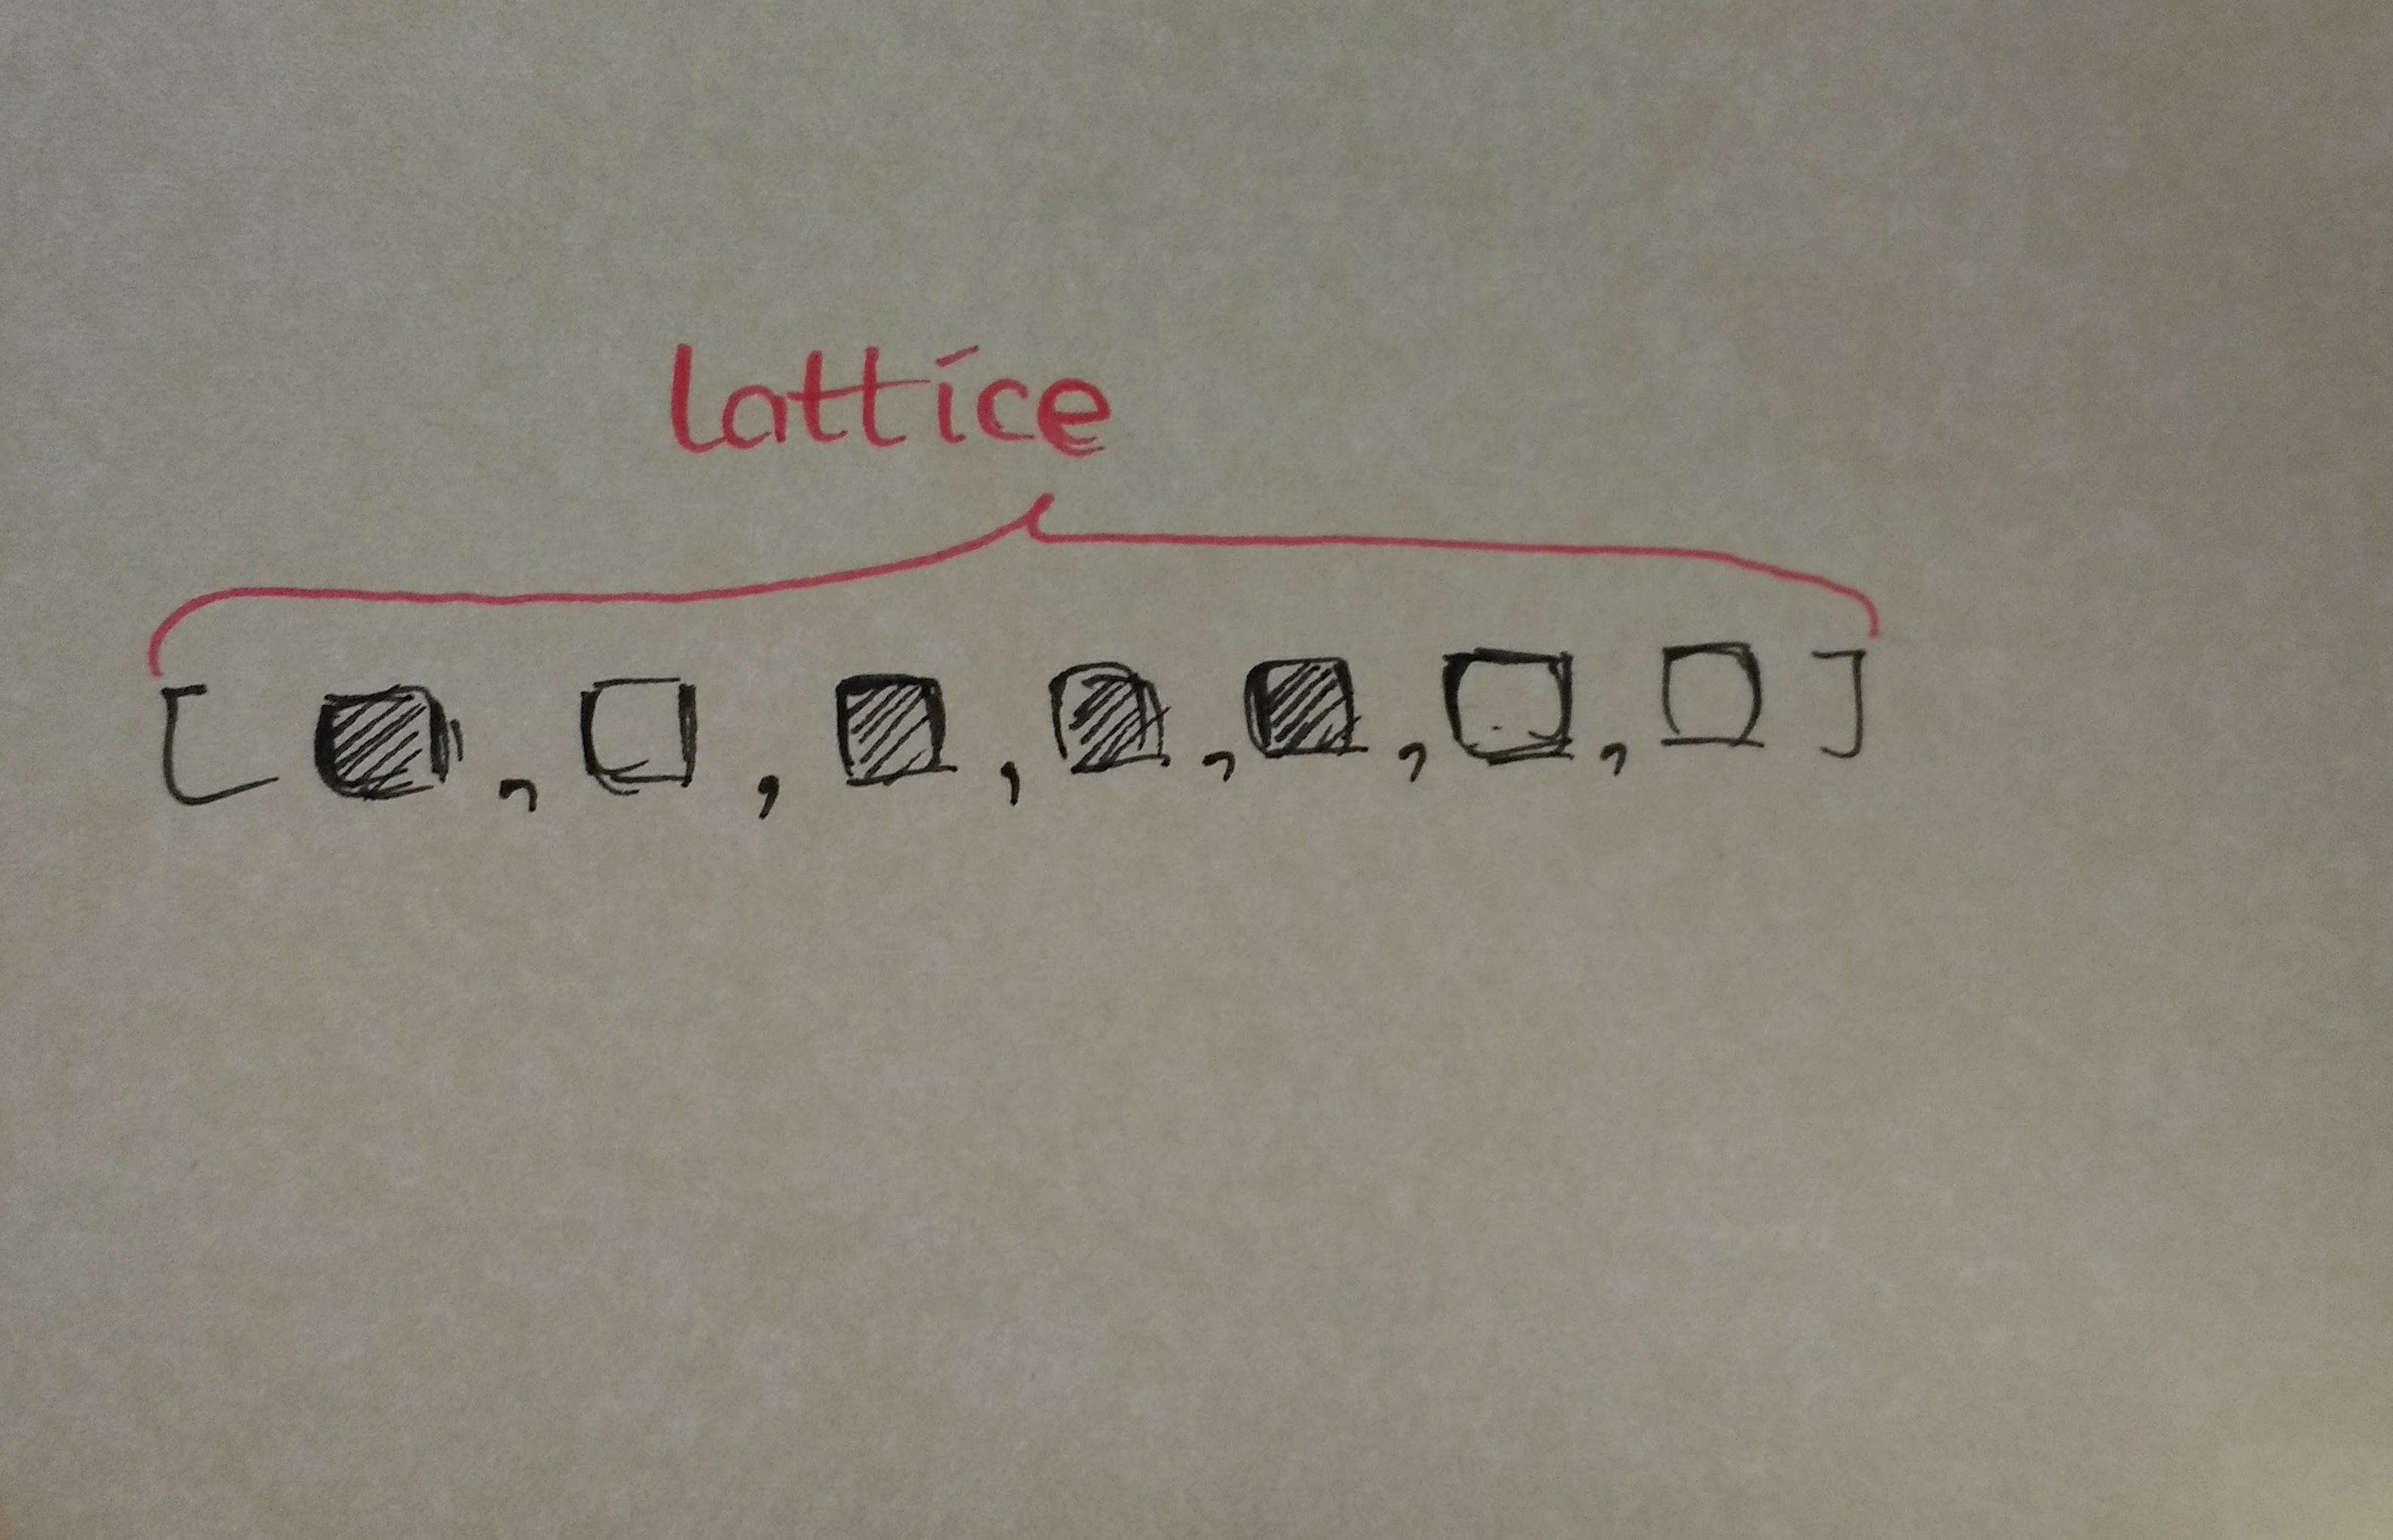 lattice
[ , , , , , , ]